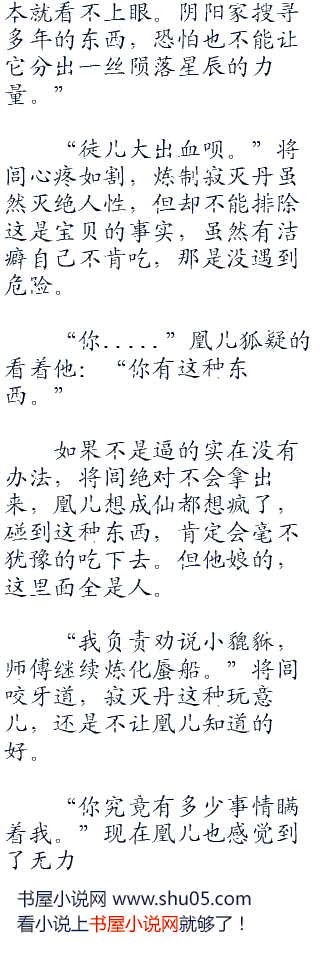 本就看不上眼。阴阳家搜寻
多年的东西，恐怕也不能让
它分出一丝陨落星辰的力
量。”
“徒儿大出血呗。”将
闾心疼如割，炼制寂灭丹虽
然灭绝人性，但却不能排除
这是宝贝的事实，虽然有洁
癖自己不肯吃，那是没遇到
危险。
“你.....”凰儿狐疑的
看着他：“你有这种东
西。”
如果不是逼的实在没有
办法，将闾绝对不会拿出
来，凰儿想成仙都想疯了，
碰到这种东西，肯定会毫不
犹豫的吃下去。但他娘的，
这里面全是人。
“我负责劝说小貔貅，
师傅继续炼化蜃船。”将闾
咬牙道，寂灭丹这种玩意
儿，还是不让凰儿知道的
好。
“你究竟有多少事情瞒
着我。”现在凰儿也感觉到
了无力
书屋小说网 www.shu05.com
看小说上书屋小说网就够了！